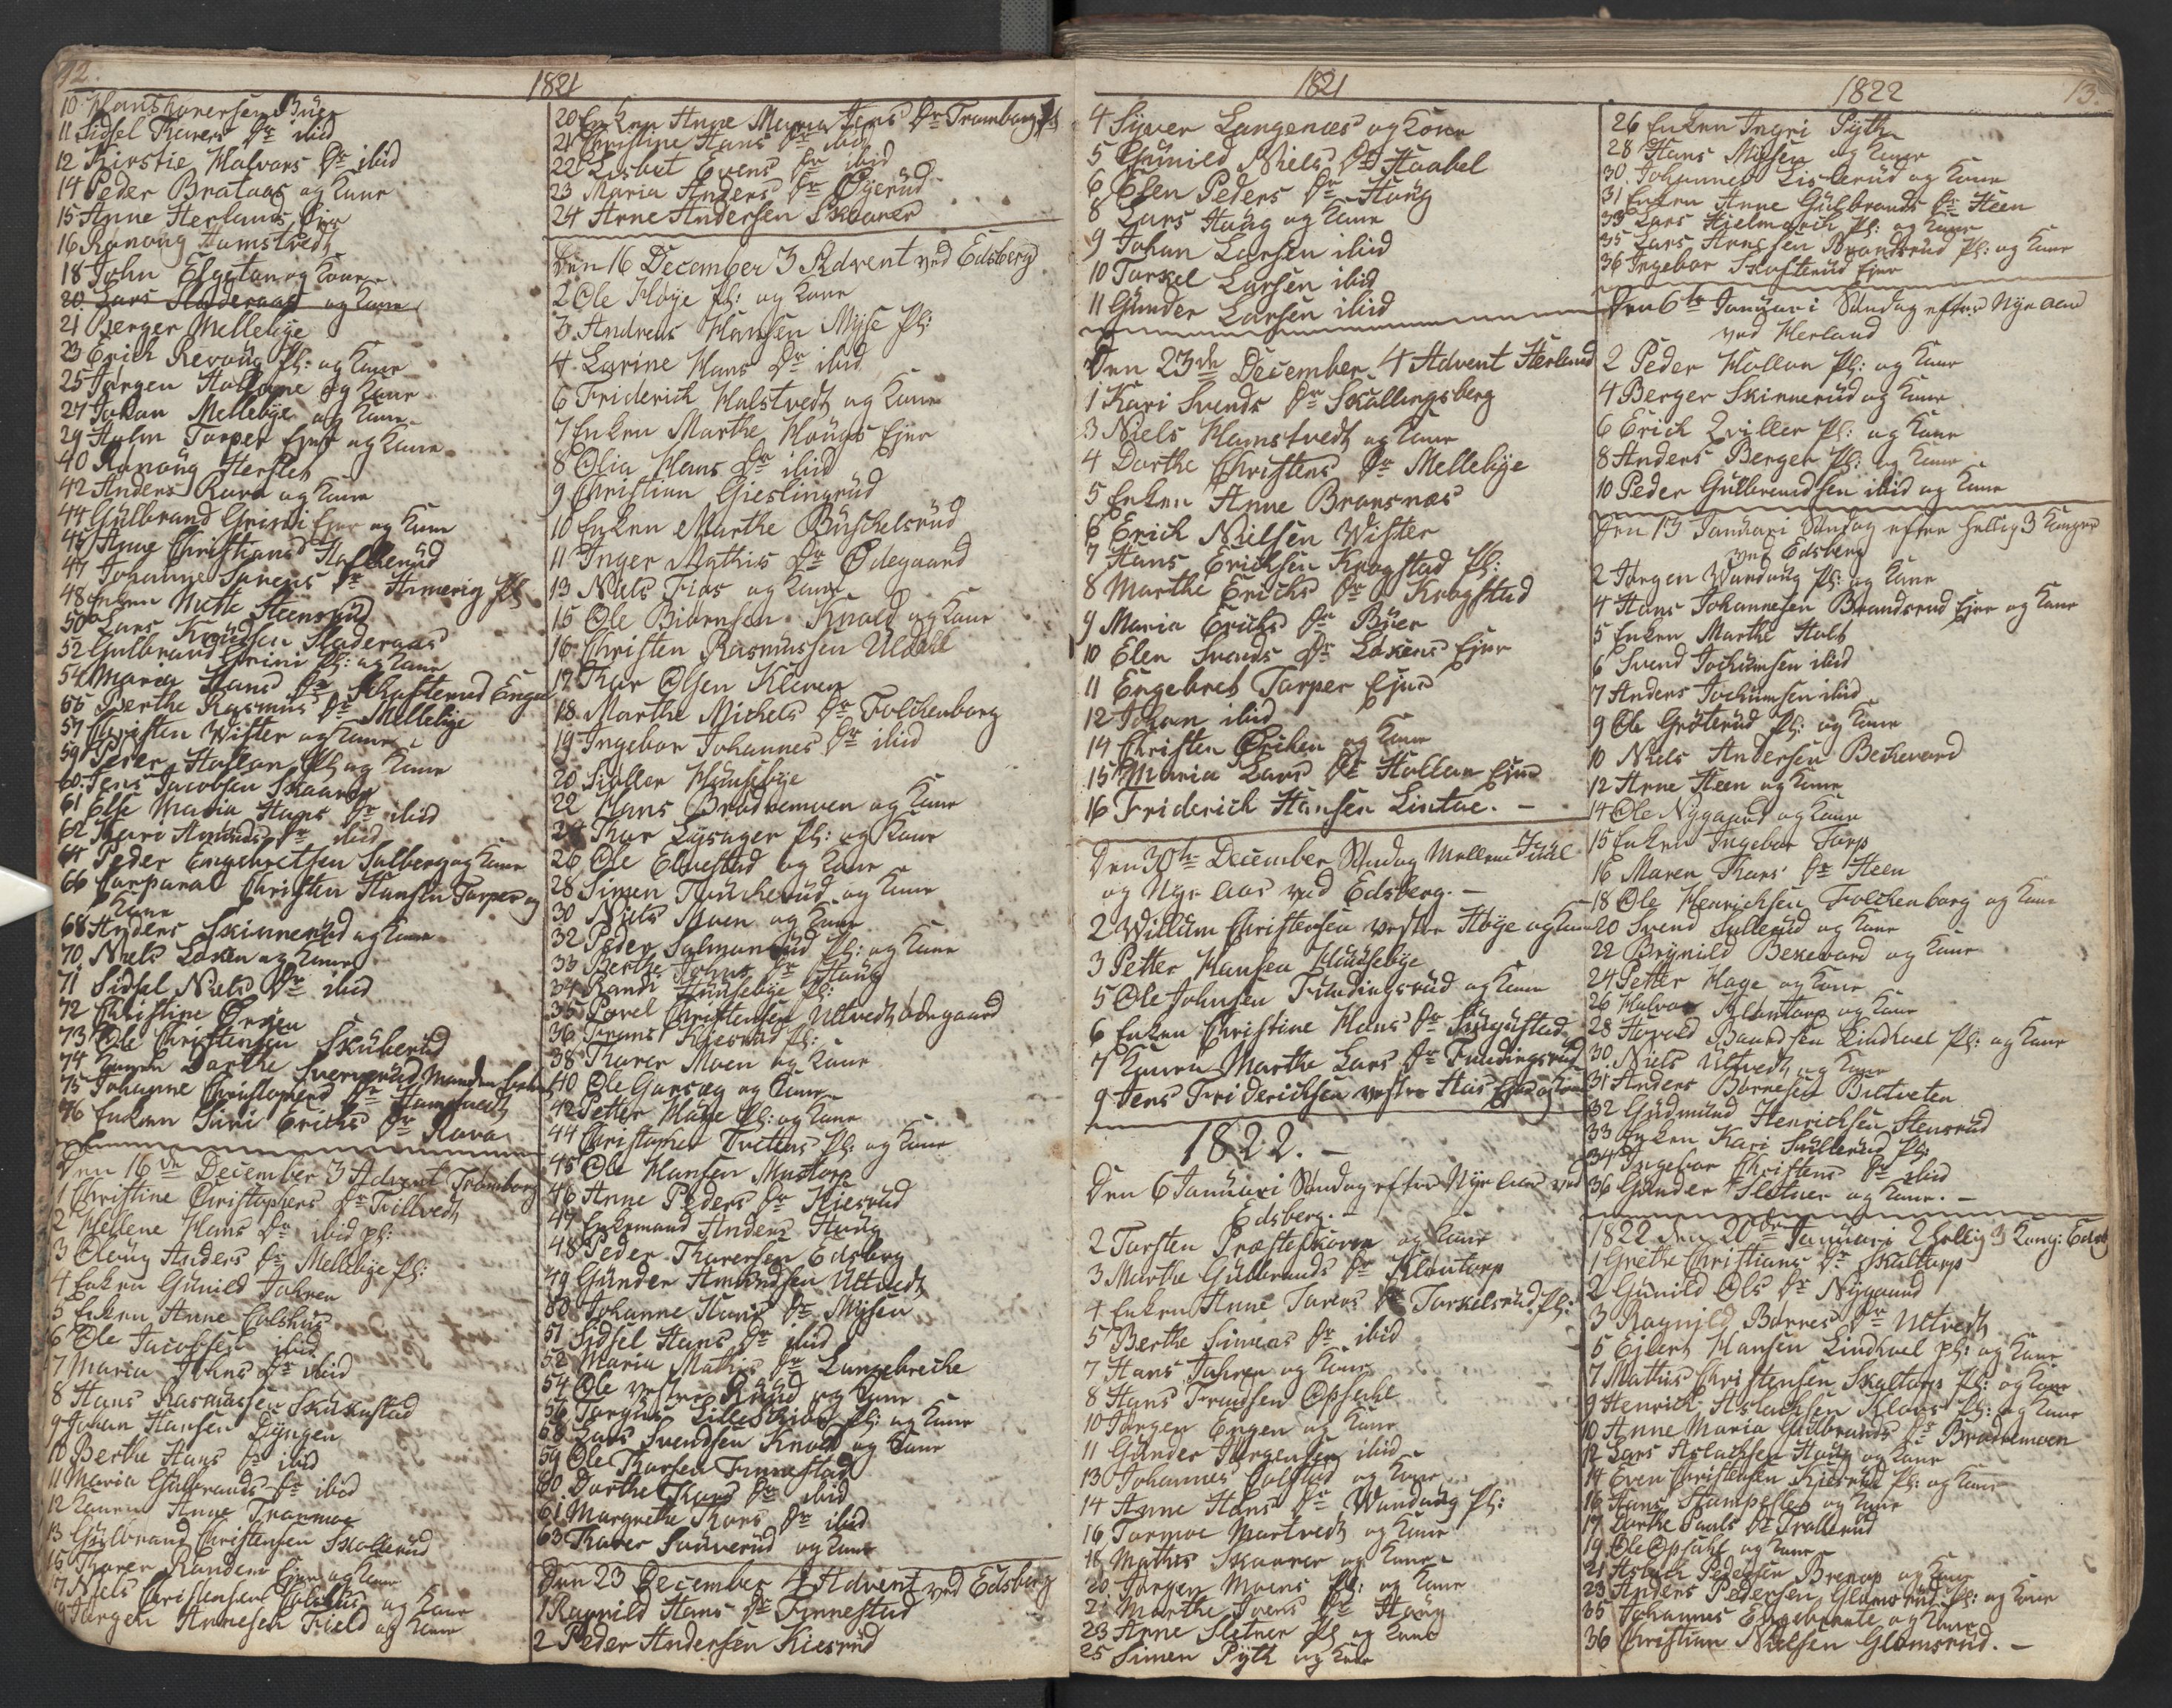 12.
1821
10 Hans Torersen Buer
11 Sidsel Thorers Dr ibid
12 Kirstie Halvors Dr ibid
14 Peder Brataas og Kone
15 Anne Herlands Eier
16 Rønnoug Hamstvedt
18 John Elgetun og Kone
20 Lars Sladeraas og Kone
21 Berger Mellebye
23 Erich Revoug Pl: og Kone
25 Jørgen Hallane og Kone
27 Johan Mellebye og Kone
29 Holm Torper Ejer og Kone
40 Rønnoug Hersleb
42 Anders Rava og Kone
44 Gulbrand Grini Ejer og Kone
45 Anne Christians
47 Johanne Sørens Dr Homerig Pl
48 Enken Mette Steensrud
50 Lars Knudsen Sladeraas
52 Gulbrand Grini Pl: og Kone
54 Maria Hans Dr Skofterud Enge
55 Berthe Rasmus Dr Mellebye
57 Christen Wister og Kone
59 Peder Hollan Pl og Kone
60 Jens Jacobsen Skaarer
61 Else Maria Hans Dr ibid
62 Kari Amunds Dr ibid
64 Peder Engebretsen Solberg og Kone
66 Corporal Christen Hansen Torper og
Kone
68 Anders Skinnerud og Kone
70 Niels Løken og Kone
71 Sidsel Niels Dr ibid
72 Christine Ørsjen
73 Ole Christensen Skuberud
74 Konen Dorthe Sververud Manden
75 Johanne Christophers Dr Hamstvedt
76 Enken Siri Erichs Dr Rava
Den 16de December 3 Advent Trømborg
1 Christine Christophers Dr Tillvedt
2 Hellene Hans Dr ibid pl:
3 Oloug Anders Dr Mellebye Pl:
4 Enken Gunild Jahren
5 Enken Anne Colshus
6 Ole Jacobsen ibid
7 Maria Johns Dr ibid
8 Hans Rasmussen Skukestad
9 Johan Hansen Dyngen
10 Berthe Hans Dr ibid
11 Maria Gulbrands Dr ibid
12 Konen Anne Tranmoe
13 Gulbrand Christensen Skollerud
15 Thorer Randem Ejer og Kone
17 Niels Christensen Colshus og Kone
19 Jørgen Arnesen Field og Kone
20 Enken Anne Maria Jens Dr Trømborg Pl
21 Christine Hans Dr ibid
22 Lisbet Evens Dr ibid
23 Maria Anders Dr Øyerud
24 Arne Andersen Skaarer
Den 16 December 3 Advent ved Edsberg
2 Ole Høye Pl: og Kone
3 Andreas Hansen Myse Pl:
4 Larine Hans Dr ibid
6 Friderich Halstvedt og Kone
7 Enken Marthe Hougs Ejer
8 Olia Hans Dr ibid
9 Christian Gieslingrud
10 Enken Marthe Buschelsrud
11 Inger Mathis Dr Ødegaard
13 Niels Fios og Kone
15 Ole Biørnsen Knold og Kone
16 Christen Rasmussen Uldahl
17 Thor Olsen Kleven
18 Marthe Michels Dr Folchenborg
19 Ingebor Johannes Dr ibid
20 Siøller Huusebye
22 Hans Brødremoen og Kone
24 Thor Lysager Pl: og Kone
26 Ole Elvestad og Kone
28 Simen Fincherud og Kone
30 Niels Moen og Kone
32 Peder Salmonrud Pl: og Kone
33 Berthe Johns Dr Haug
34 Randi Huusebye Pl:
35 Povel Christensen Ultvedt Ødegaard
36 Frans Kjesrud Pl:
38 Thorer Moen og Kone
40 Ole Garseg og Kone
42 Petter Hage Pl: og Kone
44 Christopher Tveten Pl: og Kone
45 Ole Hansen Mustorp
46 Anne Peders Dr Kiesrud
47 Enkemand Anders Haug
48 Peder Thorersen Edsberg
49 Gunder Amundsen Ultvedt
50 Johanne Hans Dr Mysen
51 Sidsel Hans Dr ibid
52 Maria Mathis Dr Langebreche
54 Ole vestre Ruud og Kone
56 Torgius Lille Skiør Pl: og Kone
58 Lars Svendsen Knold og Kone
59 Ole Thorsen Finnestad
60 Dorthe Thors Dr ibid
61 Margrethe Thors Dr ibid
63 Thorer Suuverud og Kone
Den 23 December 4 Advent ved Edsberg
1 Ragnild Hans Dr Finnestad
2 Peder Andersen Kiesrud
1821
4 Syver Langenæs og Kone
5 Gunild Niels Dr Haabel
6 Elen Peders Dr Haug
8 Lars Haug og Kone
9 Johan Larsen ibid
10 Torkel Larsen ibid
11 Gunder Larsen ibid
Den 23de December 4 Advent Herland
1 Kari Svends Dr Skallengsberg
3 Niels Hamstvedt og Kone
4 Dorthe Christens Dr Mellebye
5 Enken Anne Bransnæs
6 Erich Nielsen Wister
7 Hans Erichsen Krogstad Pl:
8 Marthe Erichs Dr Krogstad
9 Maria Erichs Dr Buer
10 Elen Svends Dr Løkens Ejer
11 Engebret Torper Ejer
12 Johan ibid
14 Christen Ørihen og Kone
15 Maria Lars Dr Hollan Ejer
16 Friderich Hansen Lintoe. –
Den 30te December Søndag Mellem Juul
og Nye Aar ved Edsberg. –
2 Willum Christensen vestre Høye og Kone
3 Petter Hansen Huusebye
5 Ole Johnsen Fundingsrud og Kone
6 Enken Christine Hans Dr Sugustad
7 Konen Marthe Lars Dr Fundingsrud
9 Jens Friderichsen vestre Has Ejer og Kone
1822. –
Den 6 Januari Søndag efter Nye Aar ved
Edsberg. –
2 Torsten Præsteskoven og Kone
3 Marthe Gulbrands Dr Klontorp
4 Enken Anne Torers Dr Torkelsrud Pl:
5 Berthe Simens Dr ibid
7 Hans Jahren og Kone
8 Hans Frandsen Opsahl
10 Jørgen Engen og Kone
11 Gunder Jørgensen ibid
13 Johannes Colstad og Kone
14 Anne Hans Dr Wandoug Pl:
16 Tormoe Mortvedt og Kone
18 Mathis Skaarer og Kone
20 Jørgen Moens Pl: og Kone
21 Marthe Ivers Dr Haug
23 Arne Sletner Pl og Kone
25 Simen Pyth og Kone
1822
13.
26 Enken Ingri Pyth
28 Hans Misen og Kone
30 Johannes Lislerud og Kone
31 Enken Anne Gulbrands Dr Heen
33 Lars Hielmarch Pl: og Kone
35 Lars Arnesen Brandsrud Pl: og Kone
36 Ingebor Skofterud Ejer
Den 6te Januari Søndag efter Nye Aar
ved Herland
2 Peder Hollan Pl: og Kone
4 Berger Skinnerud og Kone
6 Erich Qviller Pl: og Kone
8 Anders Berger Pl: og Kone
10 Peder Gulbrandsen ibid og Kone
Den 13 Januari Søndag efter Hellig 3 Konger
ved Edsberg
2 Jørgen Wandoug Pl: og Kone
4 Hans Johannesen Brandsrud Ejer og Kone
5 Enken Marthe Holt
6 Svend Jochumsen ibid
7 Anders Jochumsen ibid
9 Ole Grøterud Pl: og Kone
10 Niels Andersen Bechevard
12 Arne Heen og Kone
14 Ole Nygaard og Kone
15 Enken Ingebor Torp
16 Maren Thors Dr Heen
18 Ole Henrichsen Folchenborg og Kone
20 Svend Sullerud og Kone
22 Brynild Bekevard og Kone
24 Petter Hage og Kone
26 Halvor Klontorp og Kone
28 Hovold Baardsen Lindhoel Pl: og Kone
30 Niels Ultvedt og Kone
31 Anders Børnesen Bultveten
32 Gudmund Henrichsen Stensrud
33 Enken Kari Sullerud Pl:
34 Ingebor Christens Dr ibid
36 Gunder Sletner og Kone. –
1822 den 20de Januari 2 Hellig 3 Kong: Edsb
1 Grethe Christians Dr Skaltorp
2 Gunild Ols Dr Nygaard
3 Ragnild Børres Dr Ultvedt
5 Ejlert Hansen Lindhoel pl: og Kone
7 Mathis Christensen Skaltorp Pl: og Kone
9 Henrich Aslachsen Klavs Pl: og Kone
10 Anne Maria Gulbrands Dr Brødremoen
12 Lars Aslachsen Haug og Kone
14 Even Christensen Kiesrud Pl: og Kone
16 Hans Stampeflet og Kone
17 Dorthe Pauls Dr Trollerud
19 Ole Opsahl og Kone
21 Aslach Pedersen Brenop og Kone
23 Anders Pedersen Glomsrud Pl: og Kone
35 Johannes og Kone
36 Christian Nielsen Glomsrud. –